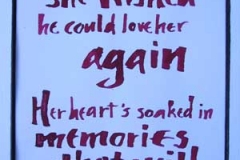 she wished
he could love her
again
Her heart's soaked in
memories
that will